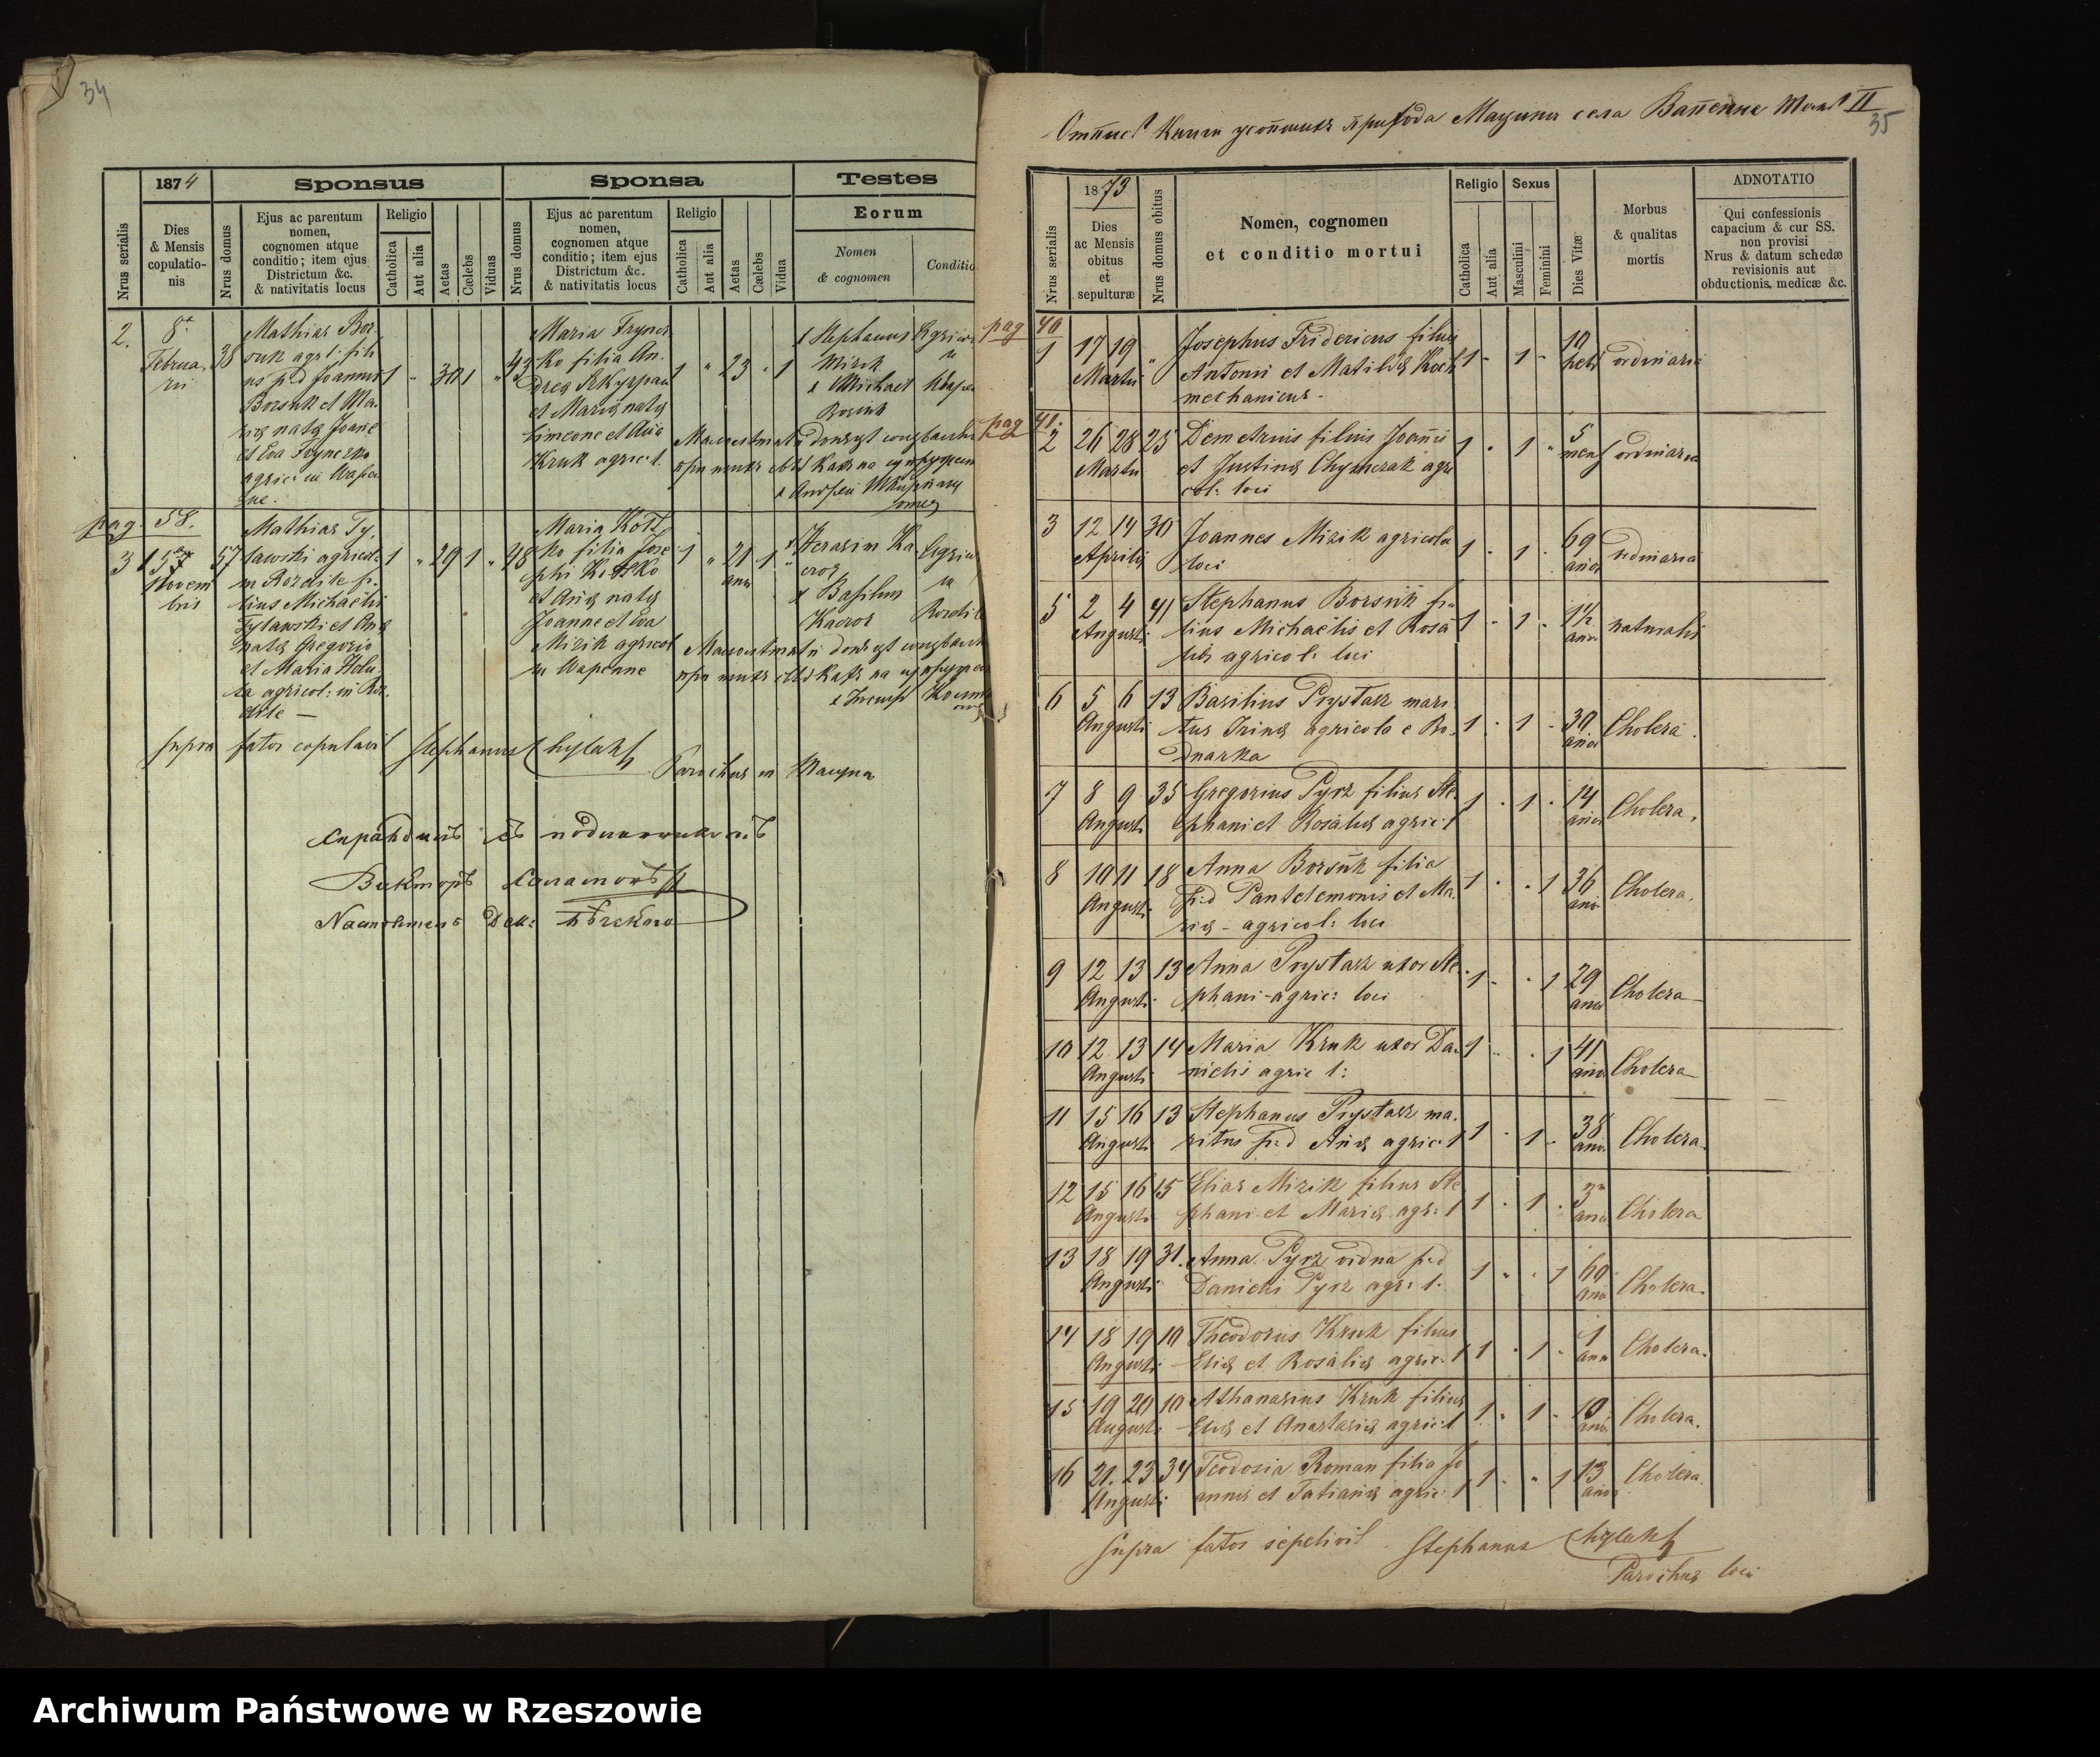 34
1874
Sponsus
Sponsa
Testes
Nrus serialis
Dies
& Mensis
copulatio-
nis
Nrus domus
Ejus ac parentum
nomen,
cognomen atque
conditio; item ejus
Districtum &c.
& nativitatis locus
Religio
Catholica
Aut alia
Aetas
Cœlebs
Viduas
Nrus domus
Ejus ac parentum
nomen,
cognomen atque
conditio; item ejus
Districtum &c.
& nativitatis locus
Religio
Catholica
Aut alia
Aetas
Cœlebs
Vidua
Eorum
Nomen
& cognomen
Conditio
2.
8ª
Februa-
rii
38
Mathias Bor-
suk agr. l. fili
us p.d Joannis
Borsuk et Ma-
riæ natæ Joane
et Eva Frynczko
agric: in Wapen
ne.
1 " 30 1 "
43
Maria Frync
ko filia An-
dreæ
et Mariæ natæ
Simeone et Aña
Kruk agric: l.
1 " 23 " 1
x Stephanus
Mizik
x Michael
Borsuk
pag. 58.
3
15
Novem
bris
57
Mathias Ty-
lawski agricol:
in Rozdile fi-
lius Michaelis
Tylawski et An
natæ Gregorio
et Maria
agricol: in Roz-
dile —
1 " 29 1 "
48
Maria Kotz
ko filia Jose
phi Kotzko
et Añæ natæ
Joanne et Eva
Mizik agricol
in Wapenne
1 " 21 1 "
ann
x Harasim Ka
croz
x Basilius
Kacroz
supra fatos copulavit Stephanus Chylak
Parochus in Мацина
35
1873
Nrus serialis
Dies
ac Mensis
obitus
et
sepulturæ
Nrus domus obitus
Nomen, cognomen
et conditio mortui
Religio
Catholica
Aut alia
Sexus
Masculini
Feminini
Dies Vitæ
Morbus
& qualitas
mortis
ADNOTATIO
Qui confessionis
capacium & cur SS.
non provisi
Nrus & datum schedæ
revisionis aut
obductionis. medicæ &c.
pag 40
1 17 19 "
Martii
Josephus Fridericus filius
Antonii et Matildæ Koch
mechanicus -
1 - 1 -
10
hebd
ordinaria
pag 41.
2 26 28 25
Martii
Demetrius filius Joañis
et Justinæ Chymczak agri
col: loci
1 " 1 "
5
mens
ordinaria
3 12 14 30
Aprilis
Joannes Mizik agricola
loci
1 - 1 -
69
anor
ordinaria
5 2 4 41
Augusti
Stephanus Borsuk fi-
lius Michaelis et Rosa
liæ agricol: loci
1 - 1 -
1½
anor
naturalis
6 5 6 13
Augusti
Basilius Prystasz mari-
tus Irinæ agricola e Bo-
dnarka
1 - 1 -
30
anor
Cholera.
7 8 9 35
Augusti
Gregorius Pyrz filius Ste-
phani et Rosaliæ agric: l
1 - 1 -
14
anor
Cholera.
8 10 11 18
Augusti
Anna Borsuk filia
p:d Pantelemonis et Ma-
riæ - agricol: loci
1 - - 1
36
anor
Cholera.
9 12 13 13
Augusti
Anna Prystasz uxor Ste-
phani - agric: loci
1 - - 1
29
anor
Cholera
10 12 13 14
Augusti
Maria Kruk uxor Da-
nielis agric l:
1 - - 1
41
anor
Cholera
11 15 16 13
Augusti
Stephanus Prystasz ma-
ritus p:d Añæ agric: l
1 - 1 -
38
anor
Cholera.
12 15 16 15
Augusti
Elias Mizik filius Ste
phani et Mariæ agr: l
1 - 1 -
3
anor
Cholera
13 18 19 31.
Augusti
Anna Pyrz vidua p:d
Danielis Pyrz agr: l:
1 - - 1
60
anor
Cholera.
14 18 19 10
Augusti
Theodorus Kruk filius
Eliæ et Rosaliæ agric: l
1 - 1 -
1
ann
Cholera.
15 19 20 10
Augusti
Athanasius Kruk filius
Eliæ et Anastasiæ agric: l
1 - 1 -
10
anor
Cholera.
16 21. 23 34
Augusti
Teodosia Roman filia Jo
annis et Tatianæ agric: l
1 - - 1
13
anor
Cholera.
supra fatos sepelivit Stephanus Chylak
Parochus loci
Archiwum Państwowe w Rzeszowie